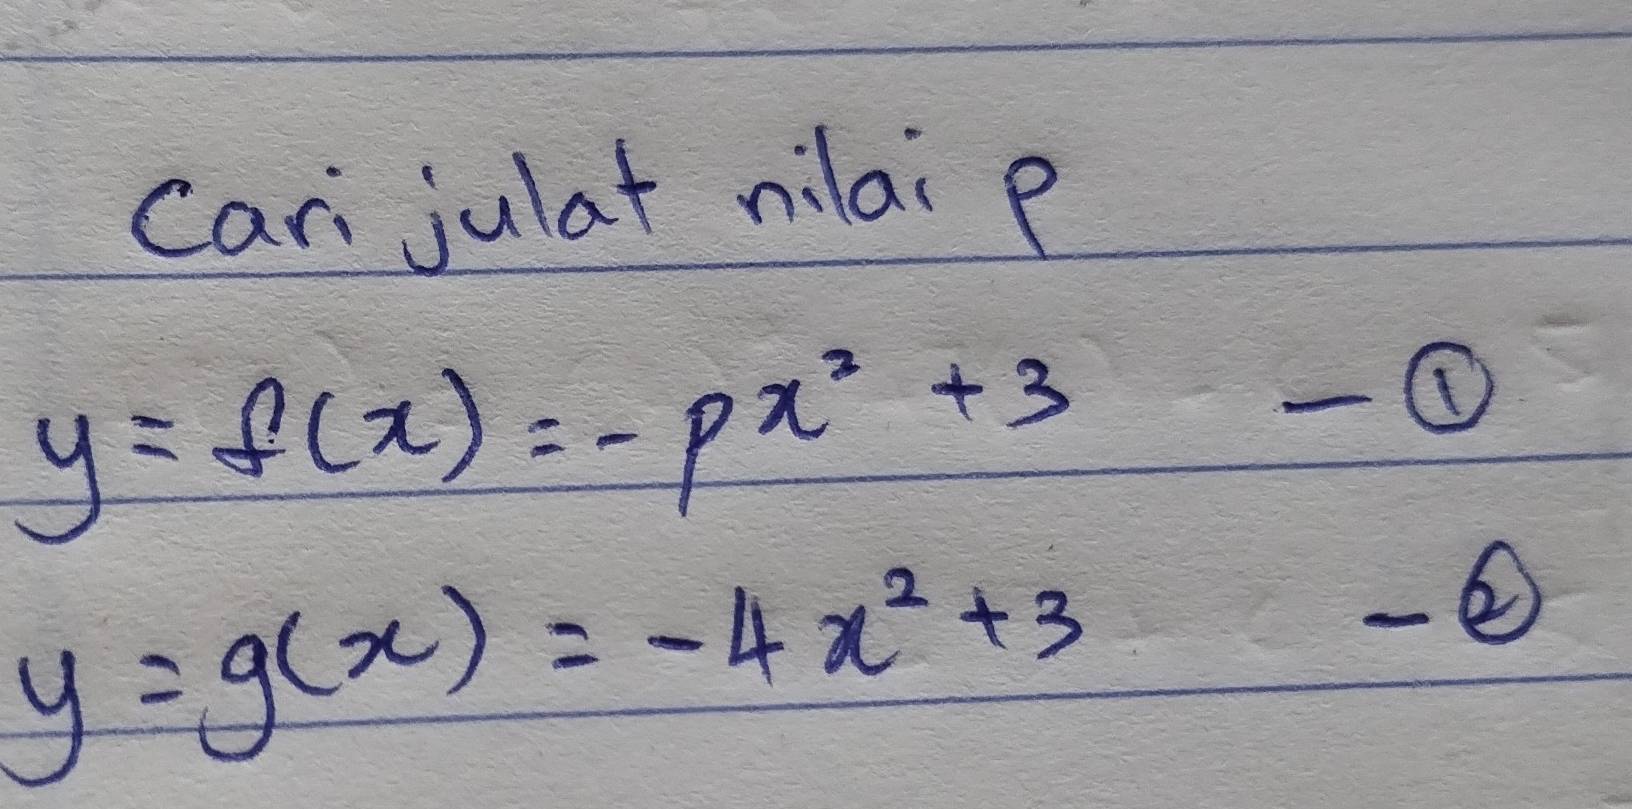 Cari julat nilai p
y = f(x) = -px² + 3 - ①
y = g(x) = -4x² + 3 - ②